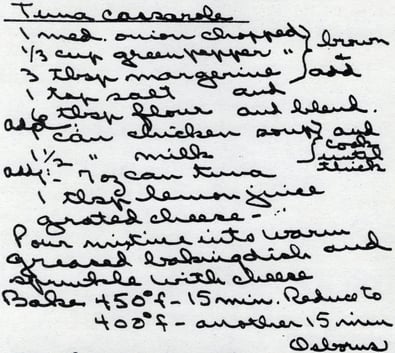 Tuna Casserole
1 med. onion chopped } brown
1/3 cup green pepper " } +
3 tbsp margerine } add
1 tsp salt and
6 tbsp flour and blend.
add 1 can chicken soup } and
1 1/2 " milk } cook until
add:- 7 oz can tuna thick
1 tbsp lemon juice
grated cheese - "
Pour mixture into warm
greased baking dish and
sprinkle with cheese
Bake 450°f - 15 min. Reduce to
400°f - another 15 min
Osborns